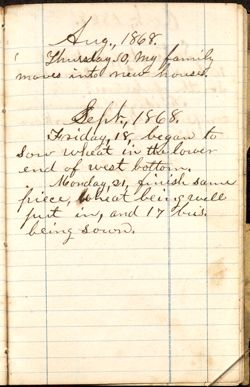 Aug., 1868.
Thursday 20, my family
moves into new house.
Sept., 1868.
Friday, 18, began to
sow wheat, in the lower
end of west bottom.
Monday, 21, finish same
piece, wheat being well
put in, and 17 bus.
being sown.